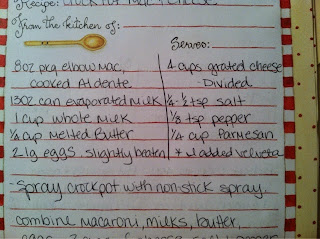 Recipe: Crock pot
From the kitchen of:
Serves:
8oz pkg elbow mac,
cooked Al dente
13oz can evaporated milk
1 cup whole milk
1/4 cup melted butter
2 lg eggs slightly beaten
4 cups grated cheese
Divided
1/4-1/2 tsp salt
1/8 tsp pepper
1/4 cup Parmesan
* I added velveta
-Spray crockpot with non-stick spray.
combine macaroni, milks, butter,